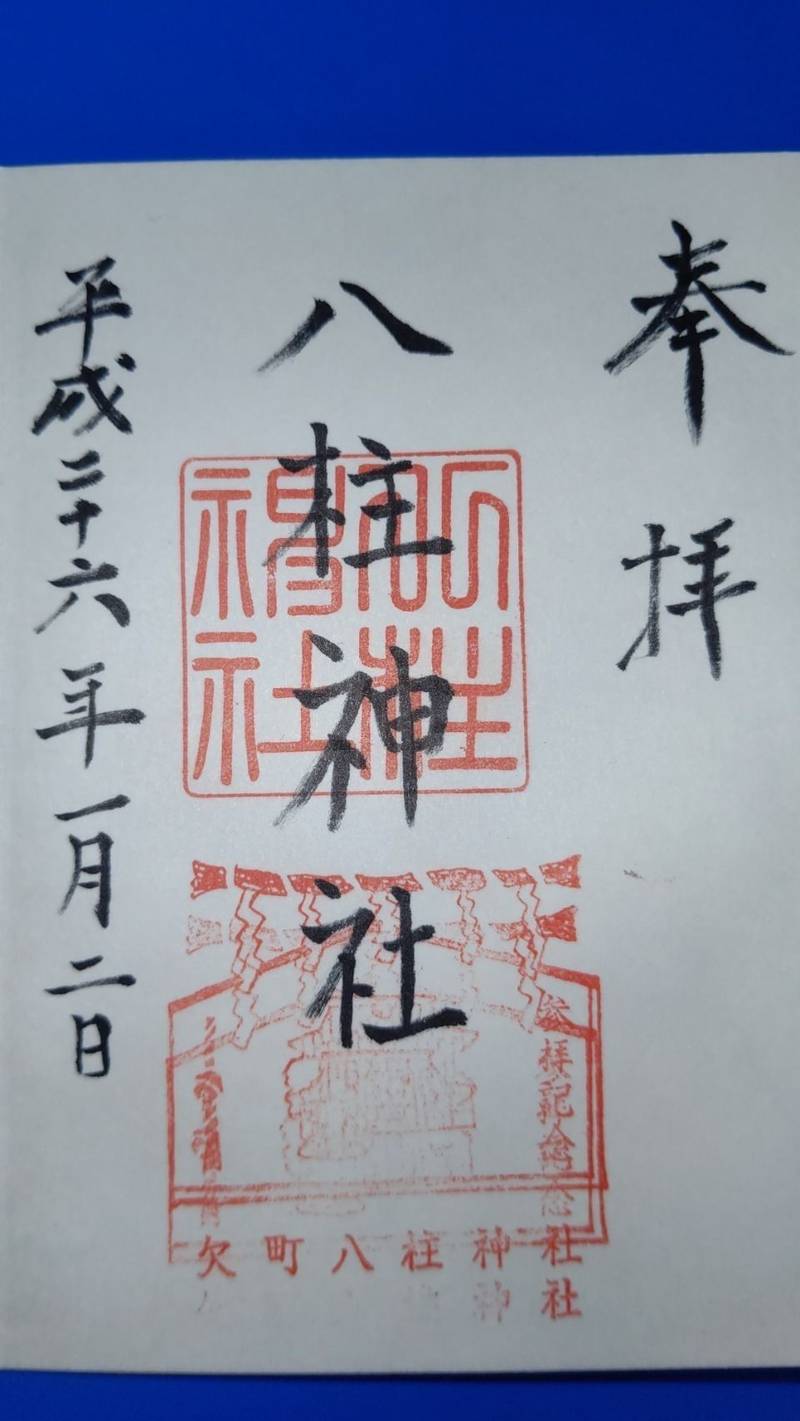 奉拝
八柱神社
平成二十六年一月二日
八柱神社
参拝記念
欠町八柱神社
神社